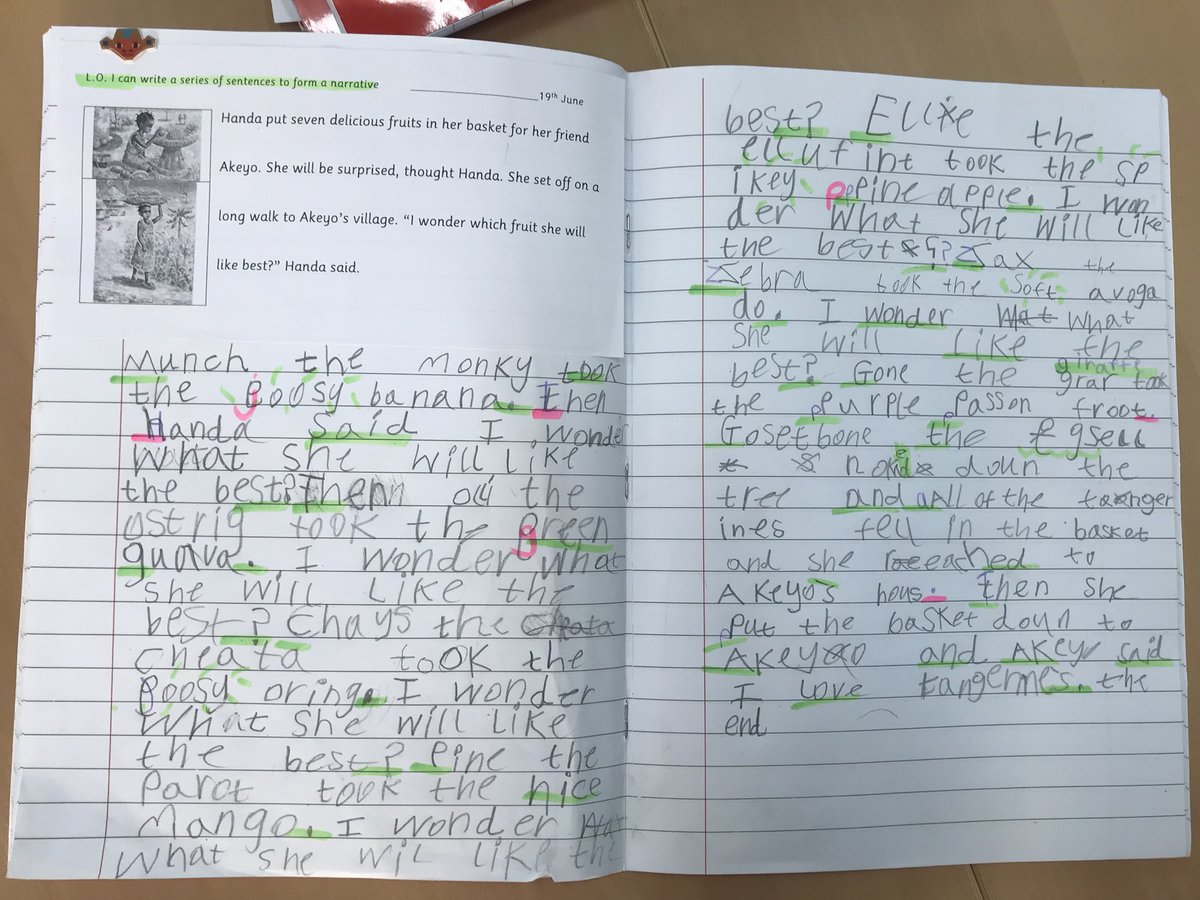 L.O. I can write a series of sentences to form a narrative
19th June
Handa put seven delicious fruits in her basket for her friend
Akeyo. She will be surprised, thought Handa. She set off on a
long walk to Akeyo's village. "I wonder which fruit she will
like best?" Handa said.
Munch the monky took
the goosy banana. Then
Handa said I wonder
What she will like
the best? Then the
ostrig took the green
guava. I wonder what
she will like the
best? Chays the
cheata took the
goosy oring. I wonder
What she will like
the best? Pine the
Parot took the nice
Mango. I wonder
What she wil like the
best? Ellie the
ellufint took the sp
ikey pine apple. I won
der what she will like
the best? Zax the
Zebra took the soft avoga
do. I wonder what
she will like the
best? Gone the giraffe took
the purple passon froot.
the
doun the
tree and all of the tanger
ines fell in the basket
and she reached to
AKeyo's hous. Then she
put the basket doun to
AKeyo and AKey said
I love tangermes. the
end